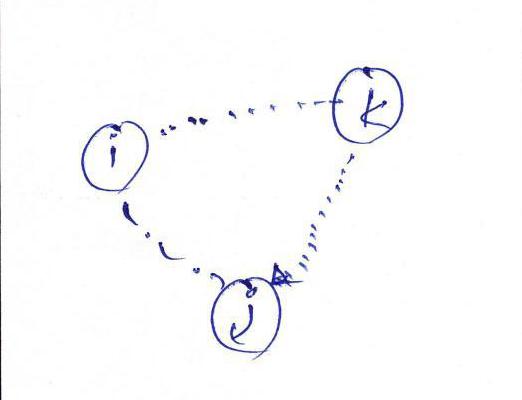 i
k
j